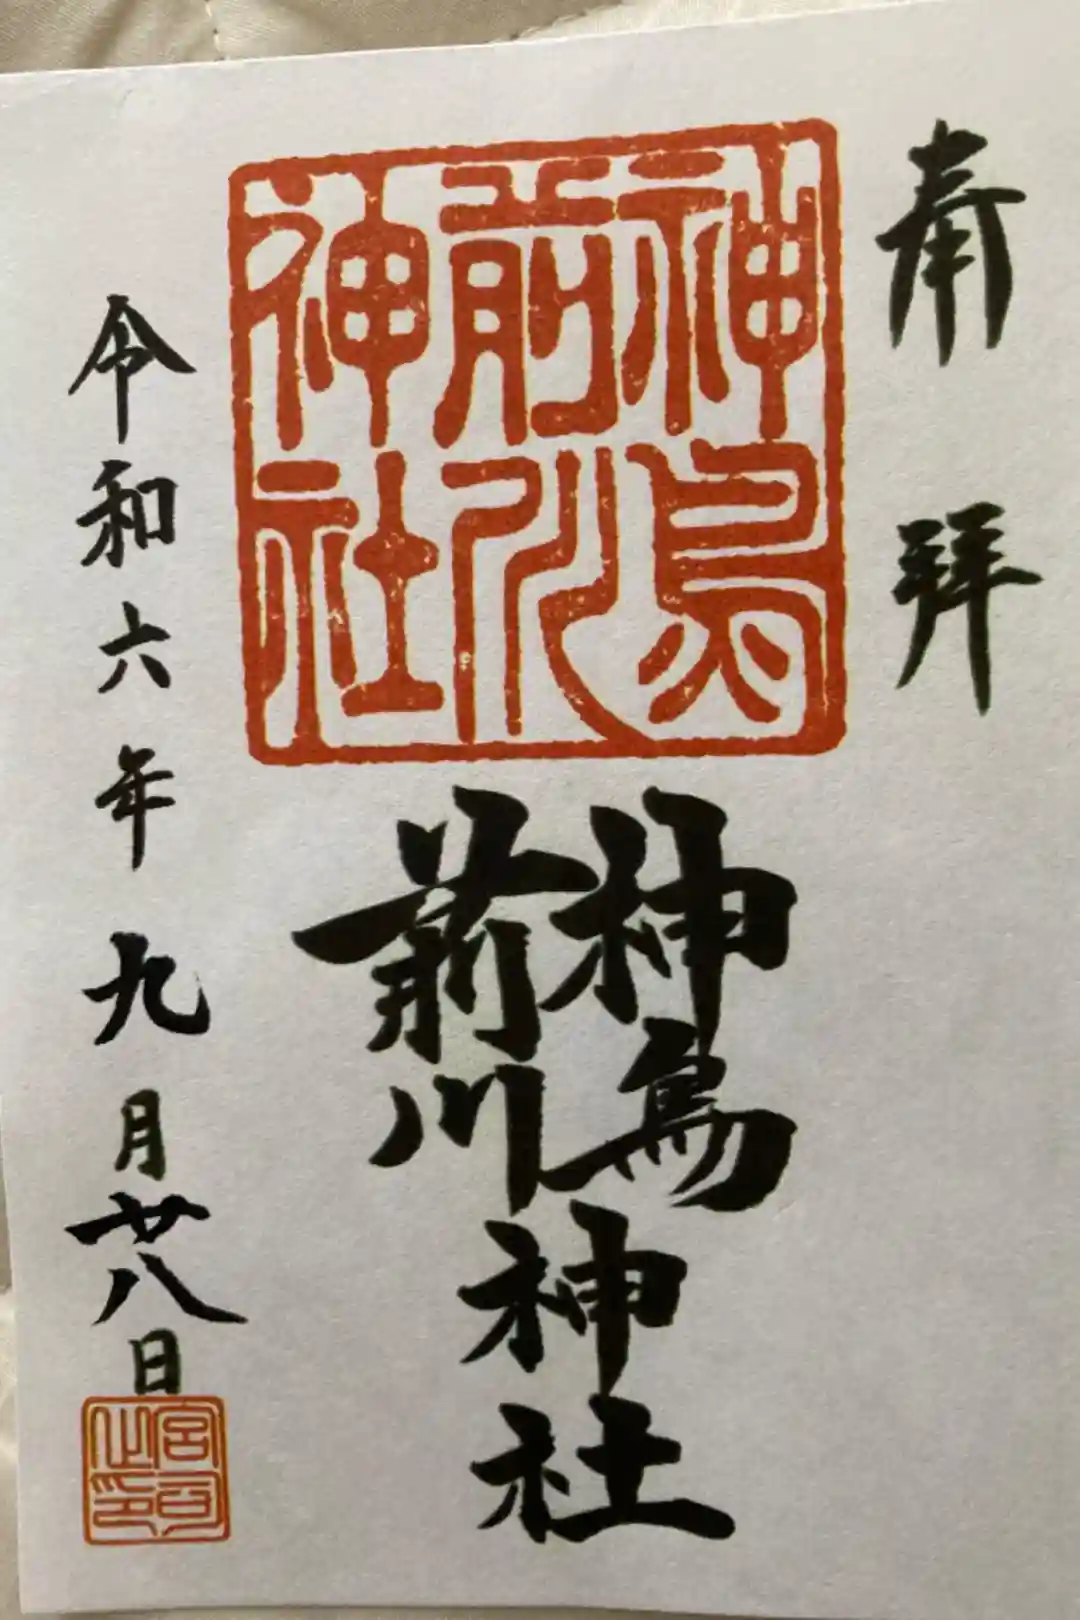 奉拝
神鳥
前川
神社
神鳥
前川
神社
令和六年九月廿八日
宮司
之印